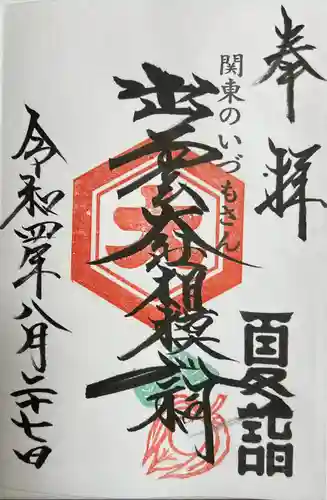 奉拝
関東のいづもさん
出雲大社相模分祠
夏詣
令和四年八月二十七日